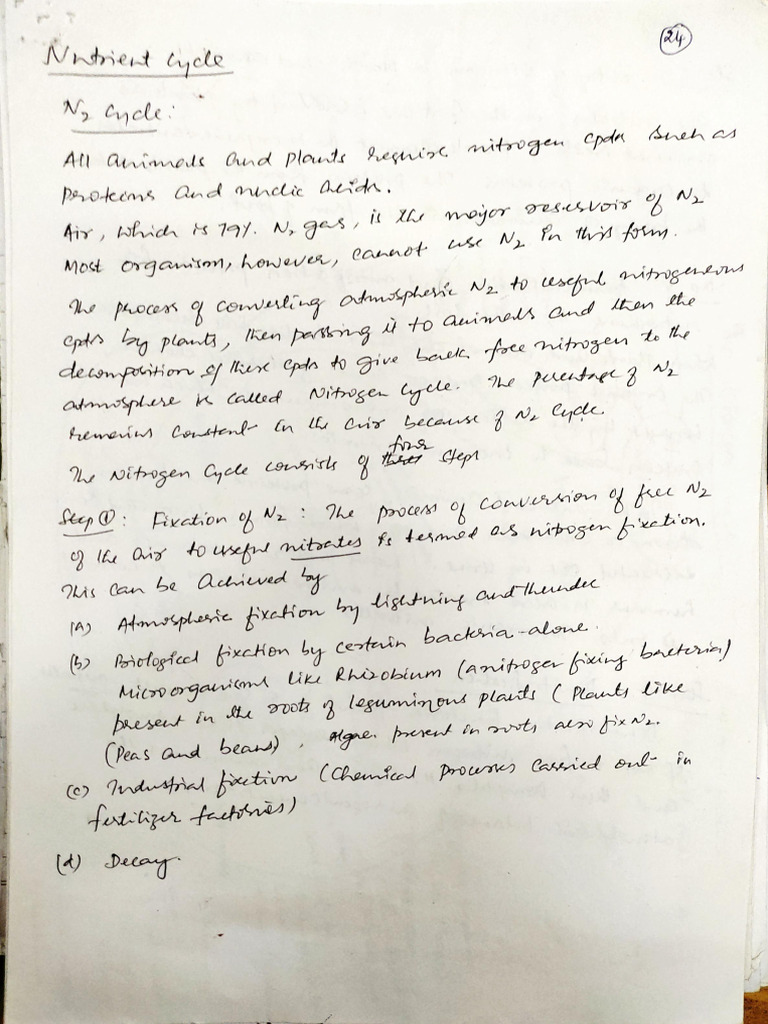 24
Nutrient Cycle
N2 Cycle:
All animals and plants require nitrogen cpds such as
proteins and nucleic acids.
Air, which is 79% N2 gas, is the major reservoir of N2
Most organism, however, cannot use N2 in this form.
The process of converting atmospheric N2 to useful nitrogeneous
cpds by plants, then passing it to animals and then the
decomposition of these cpds to give back free nitrogen to the
atmosphere is called Nitrogen Cycle. The percentage of N2
remains constant in the air because of N2 Cycle.
four
The Nitrogen Cycle consists of three steps
Step ①: Fixation of N2 : The process of conversion of free N2
of the air to useful nitrates is termed as nitrogen fixation.
This can be achieved by
(A) Atmospheric fixation by lightning and thunder
(b) Biological fixation by certain bacteria alone.
Microorganisms like Rhizobium (a nitrogen fixing bacteria)
present in the roots of leguminous plants (Plants like
(Peas and beans), Algae present in roots also fix N2.
(c) Industrial fixation (Chemical processes carried out in
fertilizer factories)
(d) Decay.